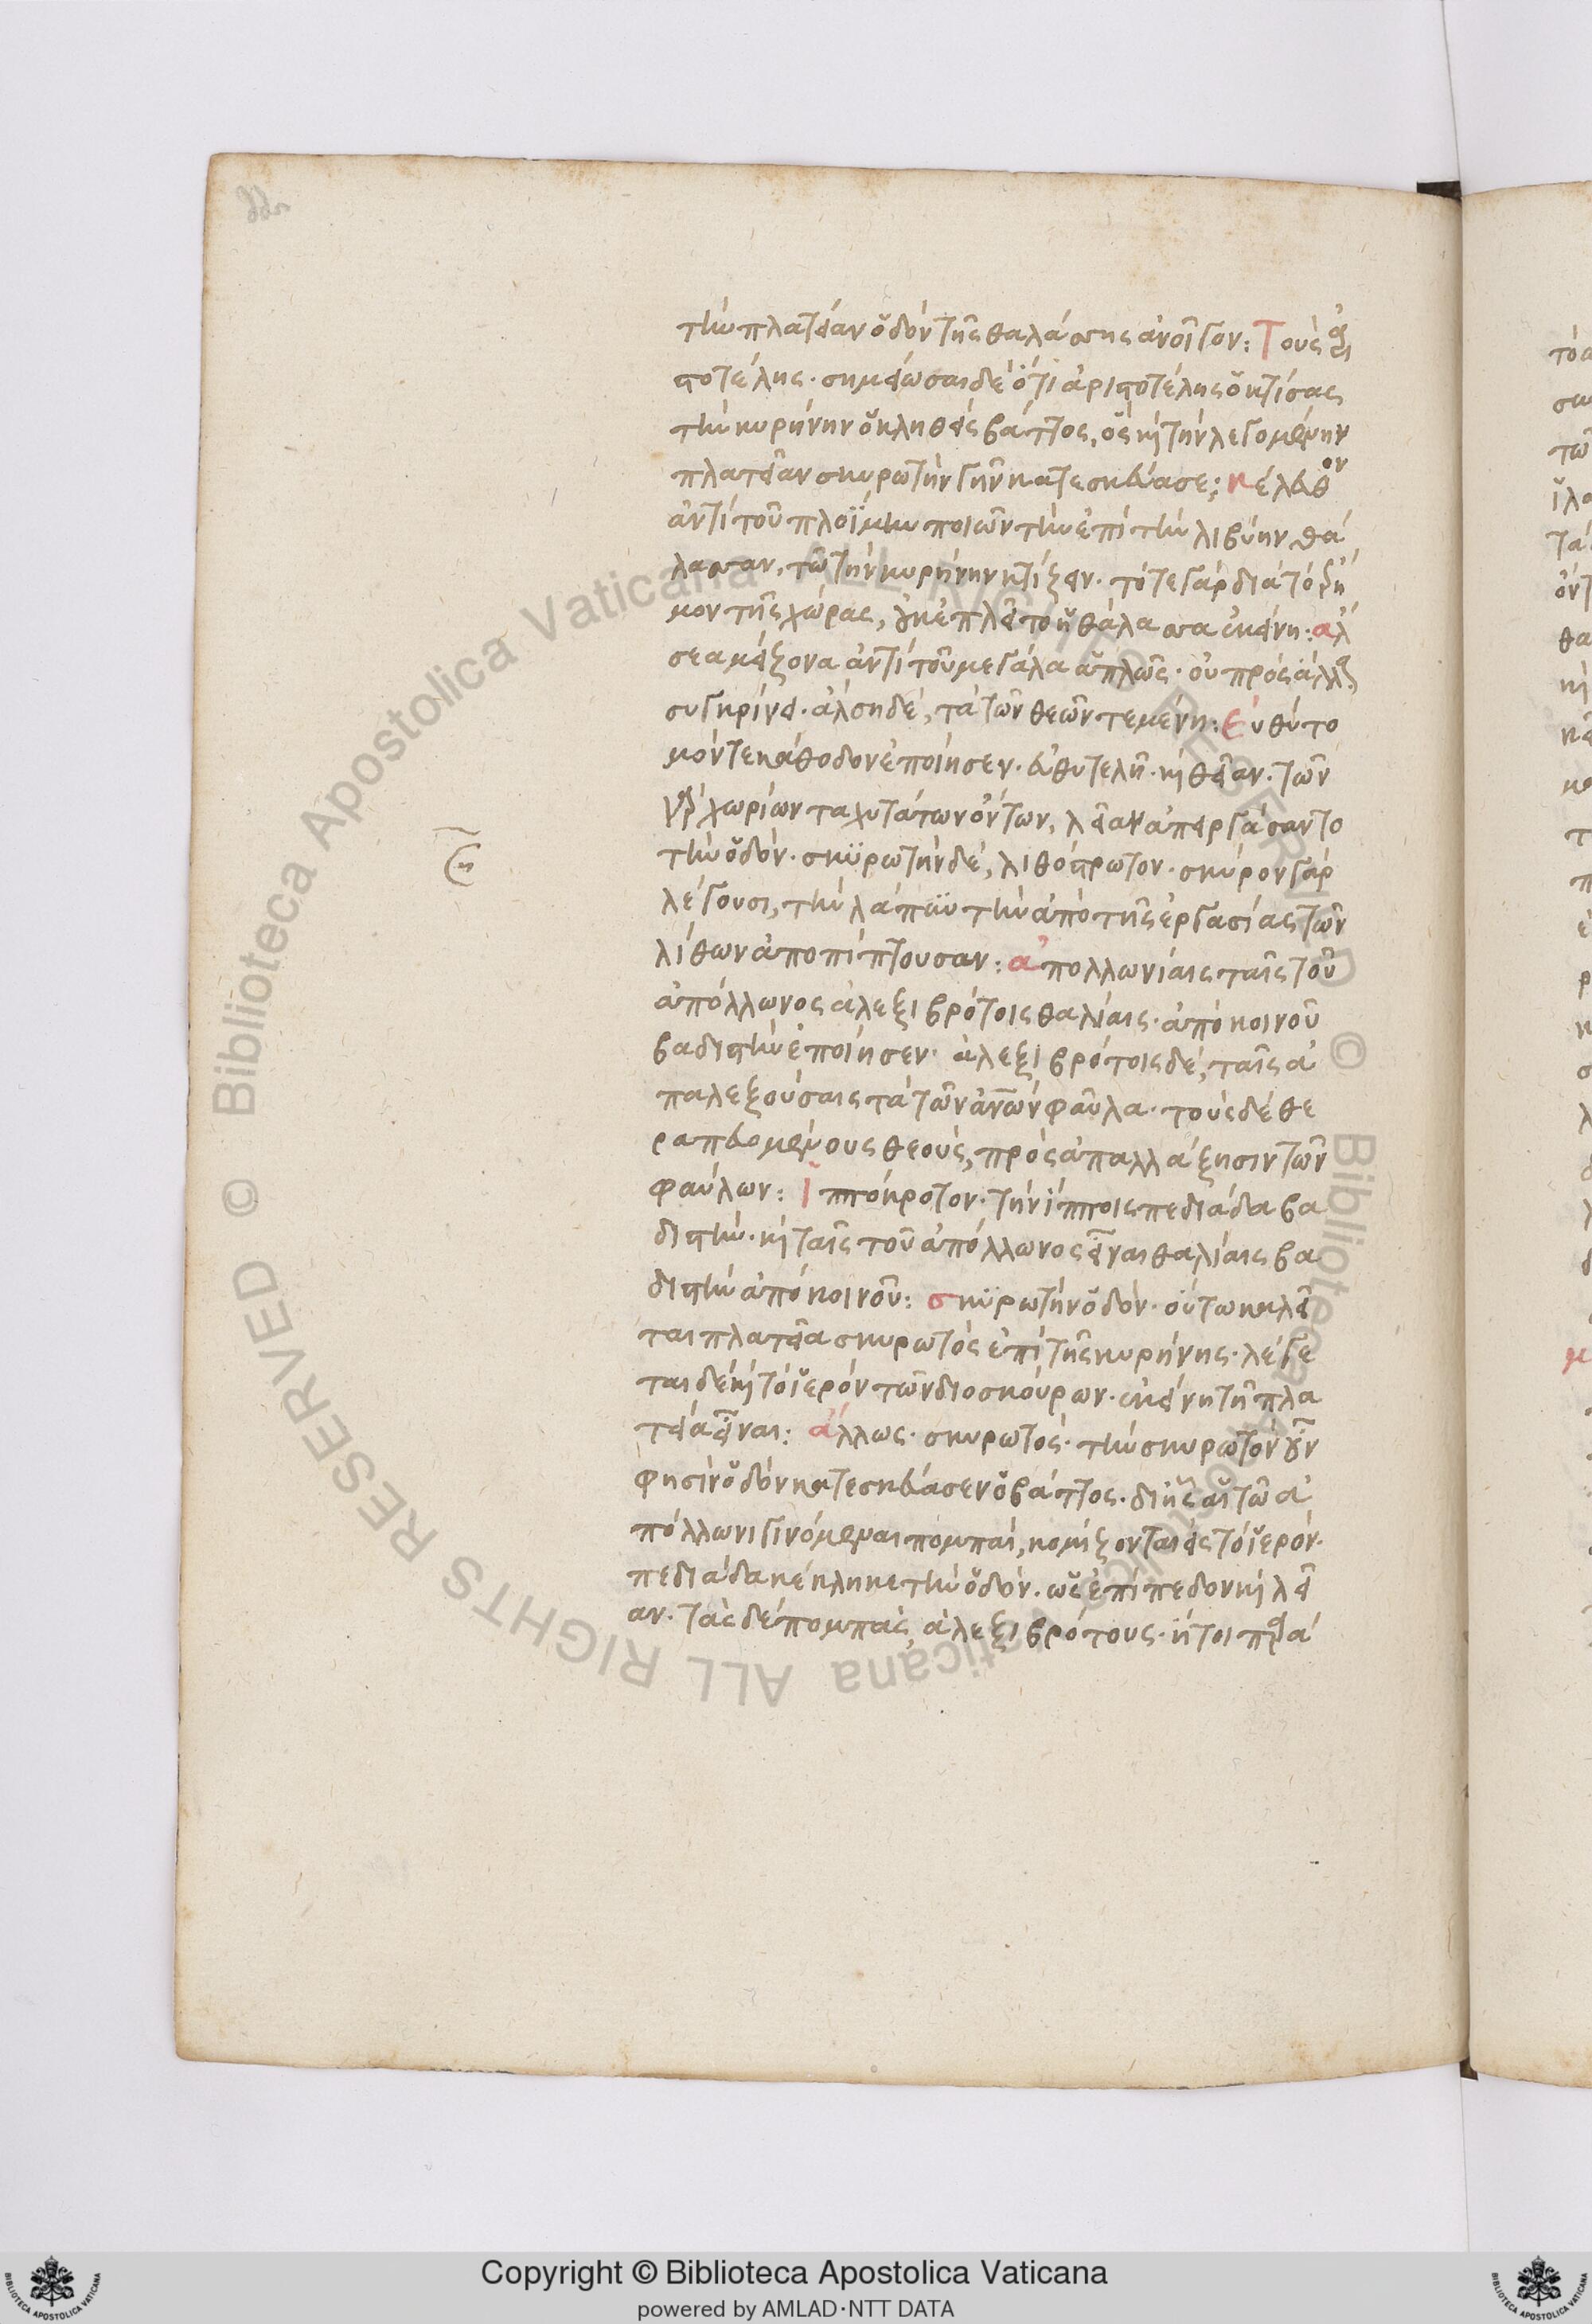 τὴν πλατεῖαν ὁδὸν τῆς θαλάσσης ἀνοῖγον: Τοὺς ἀρι
στοτέλης· σημείωσαι δὲ ὅτι ἀριστοτέλης ὁ κτίσας
τὴν κυρήνην ὁ κληθεὶς βάττος, ὃς καὶ τὴν λεγομένην
πλατεῖαν σκυρωτὴν γῆν κατεσκεύασε; κέλευθον
ἀντὶ τοῦ πλοΐμην ποιῶν τὴν ἐπὶ τὴν λιβύην θά
λασσαν, τῶ τὴν κυρήνην κτίζειν· τότε γὰρ διὰ τὸ ἔρη
μον τῆς χώρας, οὐκ ἐπλεῖτο ἡ θάλασσα ἐκείνη: ἄλ
σεα μείζονα ἀντὶ τοῦ μεγάλα ἁπλῶς· οὐ πρὸς ἄλλο
συγκρίνει· ἄλση δὲ, τὰ τῶν θεῶν τεμένη: Εὐθύτο
μόν τε κάθοδον ἐποίησεν· εὐθυτελῆ· καὶ θείαν· τῶν
γὰρ χωρίων ταχυτάτων ὄντων, λείαν ἀπειργάσαντο
τὴν ὁδόν· σκϋρωτὴν δὲ, λιθόστρωτον· σκύρον γὰρ
λέγουσι, τὴν λάτπϋν τὴν ἀπὸ τῆς ἐργασίας τῶν
λίθων ἀποπίπτουσαν: ἀπολλωνίαις ταῖς τοῦ
ἀπόλλωνος ἀλεξιβρότοις θαλίαις· ἀπὸ κοινοῦ
βαδιστὴν ἐποίησεν· ἀλεξιβρότοις δὲ, ταῖς ἀ
παλεξούσαις τὰ τῶν ἀνῶν φαῦλα· τοὺς δὲ θε
ραπευομένους θεοὺς, πρὸς ἀπαλλάξησιν τῶν
φαύλων: ἱππόκροτον· τὴν ἵπποις πεδιάδα βα
διστὴν· καὶ ταῖς τοῦ ἀπόλλωνος εἶναι θαλίαις βα
διστὴν ἀπὸ κοινοῦ: σκϋρωτὴν ὁδόν· οὕτω καλεῖ
ται πλατεῖα σκυρωτὸς ἐπὶ τῆς κυρήνης· λέγε
ται δὲ καὶ τὸ ἱερὸν τῶν διοσκούρων· ἐκείνη τῆ πλα
τεία εἶναι: ἄλλως· σκυρωτὸς· τὴν σκυρωτὸν οὖν
φησὶν ὁδὸν κατεσκεύασεν ὁ βάττος· δι ἧς αἱ τῶ ἀ
πόλλωνι γινόμεναι πομπαὶ, κομίζονται εἰς τὸ ἱερόν·
πεδιάδα κέκληκε τὴν ὁδόν· ὡς ἐπίπεδον καὶ λεῖ
αν· τὰς δὲ πομπὰς, ἀλεξιβρότους· ἤτοι παρὰ
Copyright © Biblioteca Apostolica Vaticana
powered by AMLAD·NTT DATA